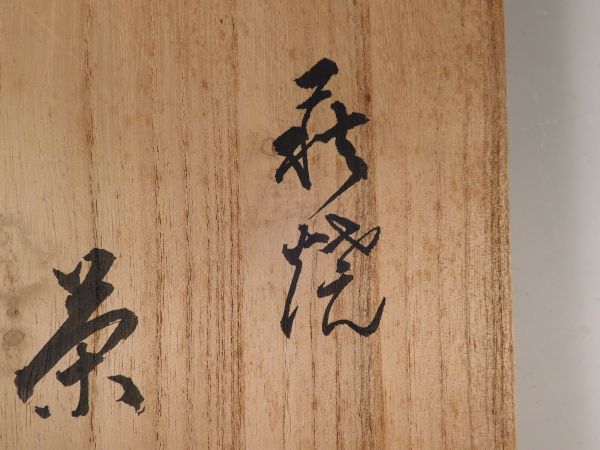 萩焼
茶